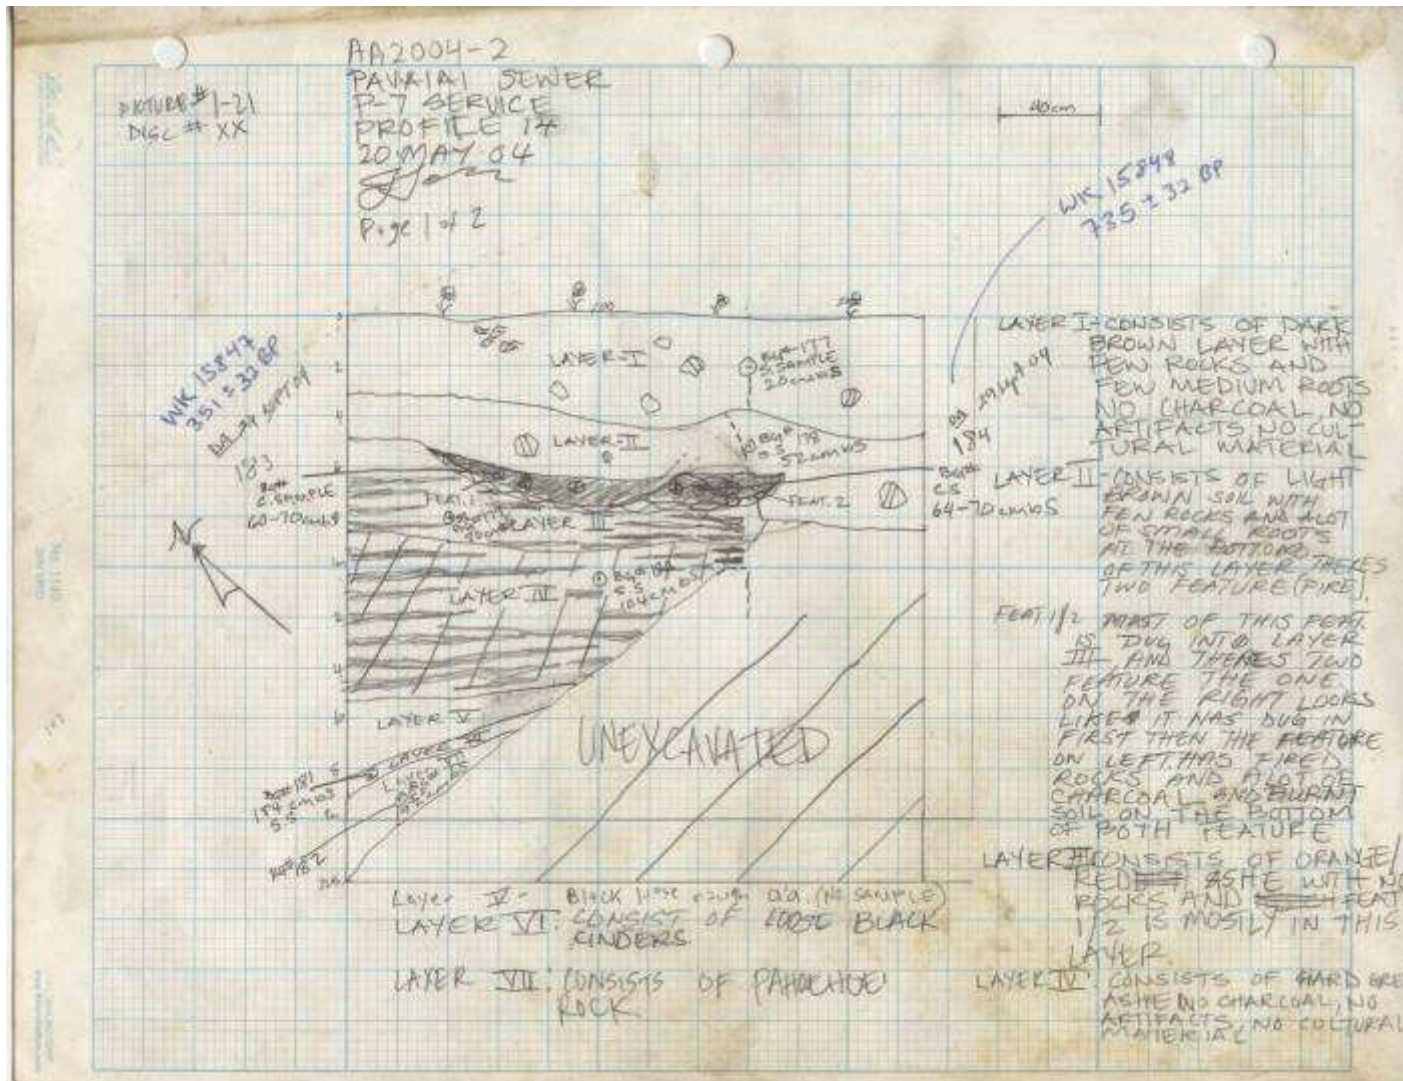 AA2004-2
PAVAIAI SEWER
P-7 SERVICE
PROFILE 14
20 MAY 04
Page 1 of 2
PICTURE # 1-21
DISC # XX
40cm
WK 15848
735 ± 32 BP
WK 15847
351 ± 32 BP
29 SEPT 04
183
C. SAMPLE
60-70cmbS
N
LAYER-I
Bg# 177
S. SAMPLE
20cmbS
LAYER-II
Bg# 178
52cmbS
FEAT. 1
FEAT. 2
LAYER III
LAYER IV
S.S
104cmbS
LAYER V
LAYER VI
UNEXCAVATED
Bg# 181
184cmbS
S.S
Bg# 182
29 Sept 04
184
Bg#
C.S
64-70cmbS
LAYER I-CONSISTS OF DARK
BROWN LAYER WITH
FEW ROCKS AND
FEW MEDIUM ROOTS
NO CHARCOAL, NO
ARTIFACTS NO CUL-
TURAL MATERIAL
LAYER II-CONSISTS OF LIGHT
BROWN SOIL WITH
FEW ROCKS AND ALOT
OF SMALL ROOTS
AT THE BOTTOM
OF THIS LAYER THERES
TWO FEATURE (FIRE)
FEAT 1/2 MOST OF THIS FEAT.
IS DUG INTO LAYER
III, AND THERES TWO
FEATURE THE ONE
ON THE RIGHT LOOKS
LIKE IT WAS DUG IN
FIRST THEN THE FEATURE
ON LEFT HAS FIRED
ROCKS AND ALOT OF
CHARCOAL AND BURNT
SOIL ON THE BOTTOM
OF BOTH FEATURE
LAYER III CONSISTS OF ORANGE/
RED ASHE WITH NO
ROCKS AND FEAT
1/2 IS MOSTLY IN THIS
LAYER
LAYER IV: CONSISTS OF HARD GRE
ASHE NO CHARCOAL, NO
ARTIFACTS, NO CULTURAL
MATERIAL
Layer V- Black loose rough a'a. (No SAMPLE)
LAYER VI: CONSIST OF LOOSE BLACK
CINDERS
LAYER VII: CONSISTS OF PAHOEHOE
ROCK